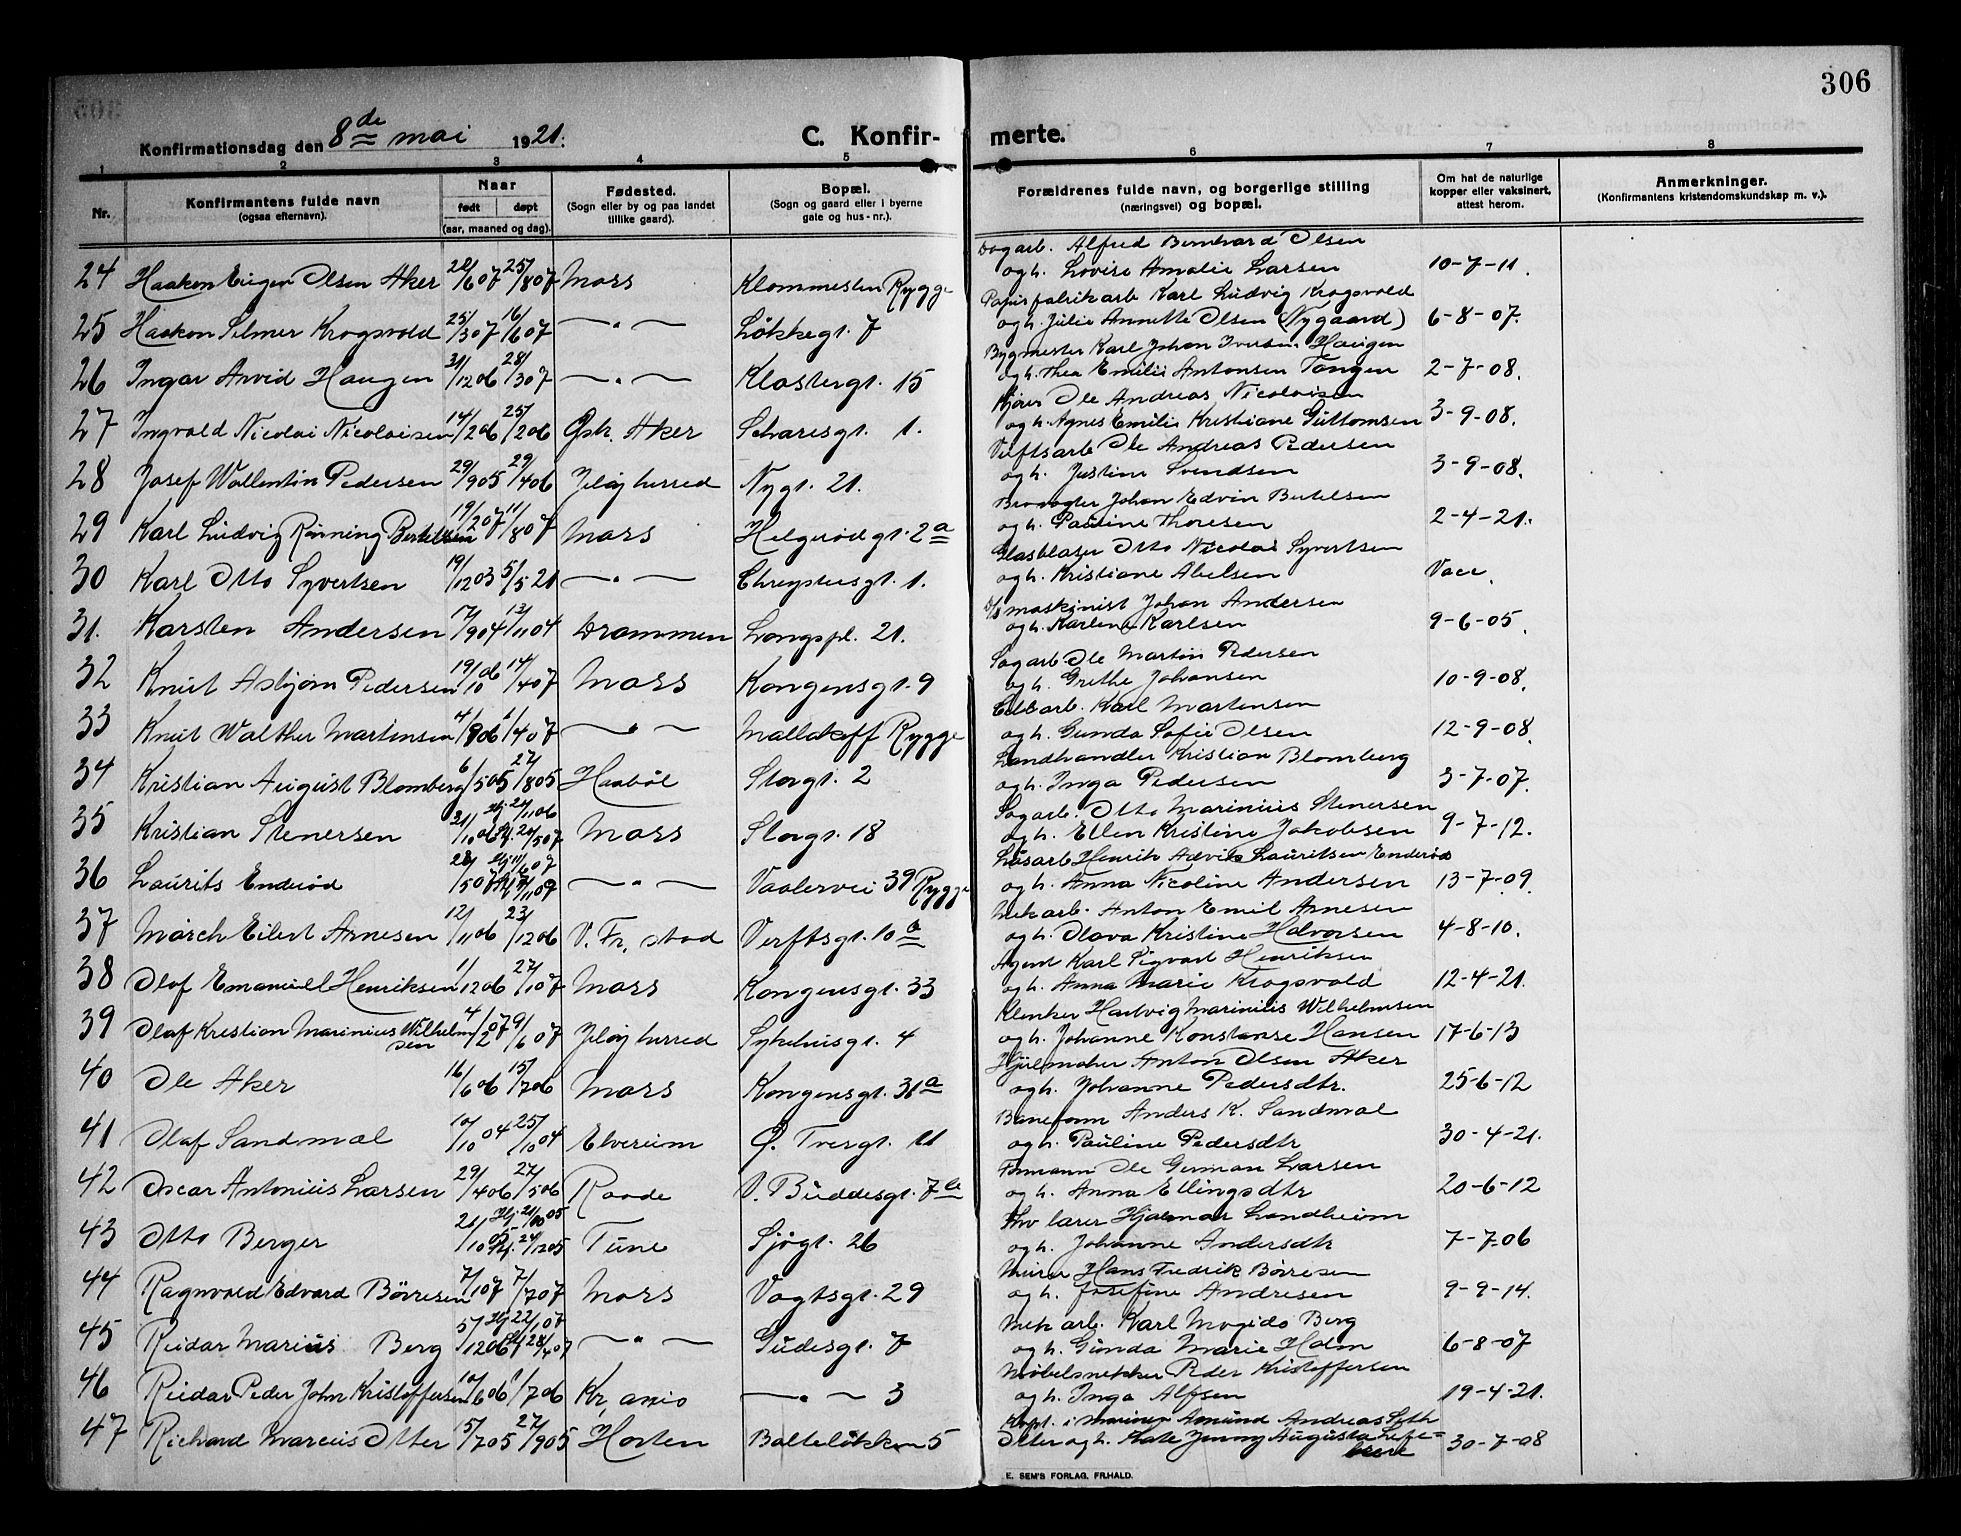 306
Konfirmationsdag den 8de mai 1921.
C. Konfirmerte.
1 2 3 4 5 6 7 8
Nr.
Konfirmantens fulde navn
(ogsaa efternavn).
Naar
født døpt
(aar, maaned og dag).
Fødested.
(Sogn eller by og paa landet
tillike gaard).
Bopæl.
(Sogn og gaard eller i byerne
gate og hus-nr.).
Forældrenes fulde navn, og borgerlige stilling
(næringsvei) og bopæl.
Om hat de naturlige
kopper eller vaksinert,
attest herom.
Anmerkninger.
(Konfirmantens kristendomskundskap m. v.).
Dagarb. Alfred Bernhard Olsen
24 Haakon Eugen Olsen Aker 28/6 07 25/8 07 Moss Klommesten Rygge og h. Lovise Amalie Larsen 10-7-11.
Papirfabrikarb Karl Ludvig Krogsvold
25 Haakon Selmer Krogsvold 25/3 07 16/6 07 —"— Løkkegt. 7 og h. Julie Annette Olsen (Nygaard) 6-8-07.
Bygmester Karl Johan Iversen Haugen
26 Ingar Arvid Haugen 31/12 06 28/3 07 —"— Klostergt. 15 og h. Thea Emilie Antonsen Tangen 2-7-08.
Kjører Ole Andreas Nicolaisen
27 Ingvald Nicolai Nicolaisen 14/2 06 25/2 06 Gsk. Aker Scharesgt. 1. og h. Agnes Emilie Kristiane Guttomsen 3-9-08.
Verftsarb Ole Andreas Pedersen
28 Josef Wallentin Pedersen 29/9 05 29/4 06 Jeløy herred Nygt. 21. og h. Justine Svendsen 3-9-08.
Brovogter Johan Edvin Bertelsen
29 Karl Ludvig Rønning Bertelsen 19/2 07 11/8 07 Moss Helgerødgt. 2a og h. Pauline Thoresen 2-4-21.
Glasblaser Otto Nicolai Syvertsen
30 Karl Otto Syvertsen 19/12 03 5/5 21 —"— Chrystiesgt. 1. og h. Kristiane Abelsen Vacc.
D/s maskinist Johan Andersen
31. Karsten Andersen 17/9 04 13/11 04 Drammen Langspl. 21. og h. Karline Karlsen 9-6-05.
Sagarb Ole Martin Pedersen
32 Knut Asbjørn Pedersen 19/10 06 14/4 07 Moss Kongensgt. 9 og h. Grethe Johansen 10-9-08.
Cellarb. Karl Martensen
33 Knut Walther Martensen 4/8 06 1/4 07 —"— Mallakoff Rygge og h. Gunda Sofie Olsen 12-9-08.
Landhandler Kristian Blomberg
34 Kristian August Blomberg 6/5 05 27/8 05 Haabøl Storgt. 2 og h. Inga Pedersen 3-7-07.
Sagarb. Otto Marinius Stenersen
35 Kristian Stenersen 31/10 06 Hj 24/11 06 Kj. 20/5 07 Moss Storgt. 18 og h. Ellen Kristine Jakobsen 9-7-12.
Løsarb Henrik Advik Lauritsen Enderød
36 Laurits Enderød 28/5 07 Hj 11/6 07 —"— Vaalervei 39 Rygge og h. Anna Nicoline Andersen 13-7-09.
Mek arb. Anton Emil Arnesen
37 March Eilert Arnesen 12/11 06 23/12 06 V. Fr. stad Verftsgt. 10 b og h. Olava Kristine Halvorsen 4-8-10.
Agent Karl Sigvart Henriksen
38 Olaf Emanuell Henriksen 1/12 06 27/10 07 Moss Kongensgt. 33 og h. Anna Marie Krogsvold 12-4-21.
Klinker Hartvig Marinius Wilhelmsen
39 Olaf Kristian Marinius Wilhelmsen 4/2 07 9/6 07 Jeløy herred Sykehusgt. 4 og h. Johanne Konstanse Hansen 17-6-13
Hjulmaker Anton Olsen Aker
40 Ole Aker 16/6 06 15/7 06 Moss Kongensgt. 31a og h. Johanne Pedersdtr. 25-6-12
Baneform Anders K. Sandmæl
41 Olaf Sandmæl 10/10 04 25/10 04 Elverum Ø. Tvergt. 11 og h. Pauline Pedersdtr 30-4-21.
Formann Ole German Larsen
42 Oscar Antonius Larsen 29/4 06 27/5 06 Raade V. Buddesgt. 7 b og h. Anna Ellingsdtr 20-6-12
lærer Hjalmar Landheim
43 Otto Berger 21/10 05 Hj 21/10 05 Kj. 24/12 05 Tune Sjøgt. 26 og h. Johanne Andersdtr 7-7-06
Murer Hans Fredrik Børresen
44 Ragnvald Edvard Børresen 7/1 07 7/7 07 Moss Vogtsgt. 29 og h. Josefine Andresen 9-9-14.
Mek arb. Karl Magido Berg
45 Reidar Marius Berg 5/12 06 Hj 22/1 07 Kj 28/4 07 —"— Gudesgt. 7 og h. Gunda Marie Holm 6-8-07
Møbelsnekker Peder Kristoffersen
46 Reidar Peder John Kristoffersen 10/6 06 1/7 06 Kr. ania —"— 3 og h. Inga Alfsen 19-4-21.
Kapt. i marinen Amund Andreas Seth
47 Richard Marcus Otter 5/7 05 27/9 05 Horten Balteløkken 5 Otter og h. Kate Jenny Augusta Lefebvre 30-7-08
E. SEM'S FORLAG, FR.HALD.